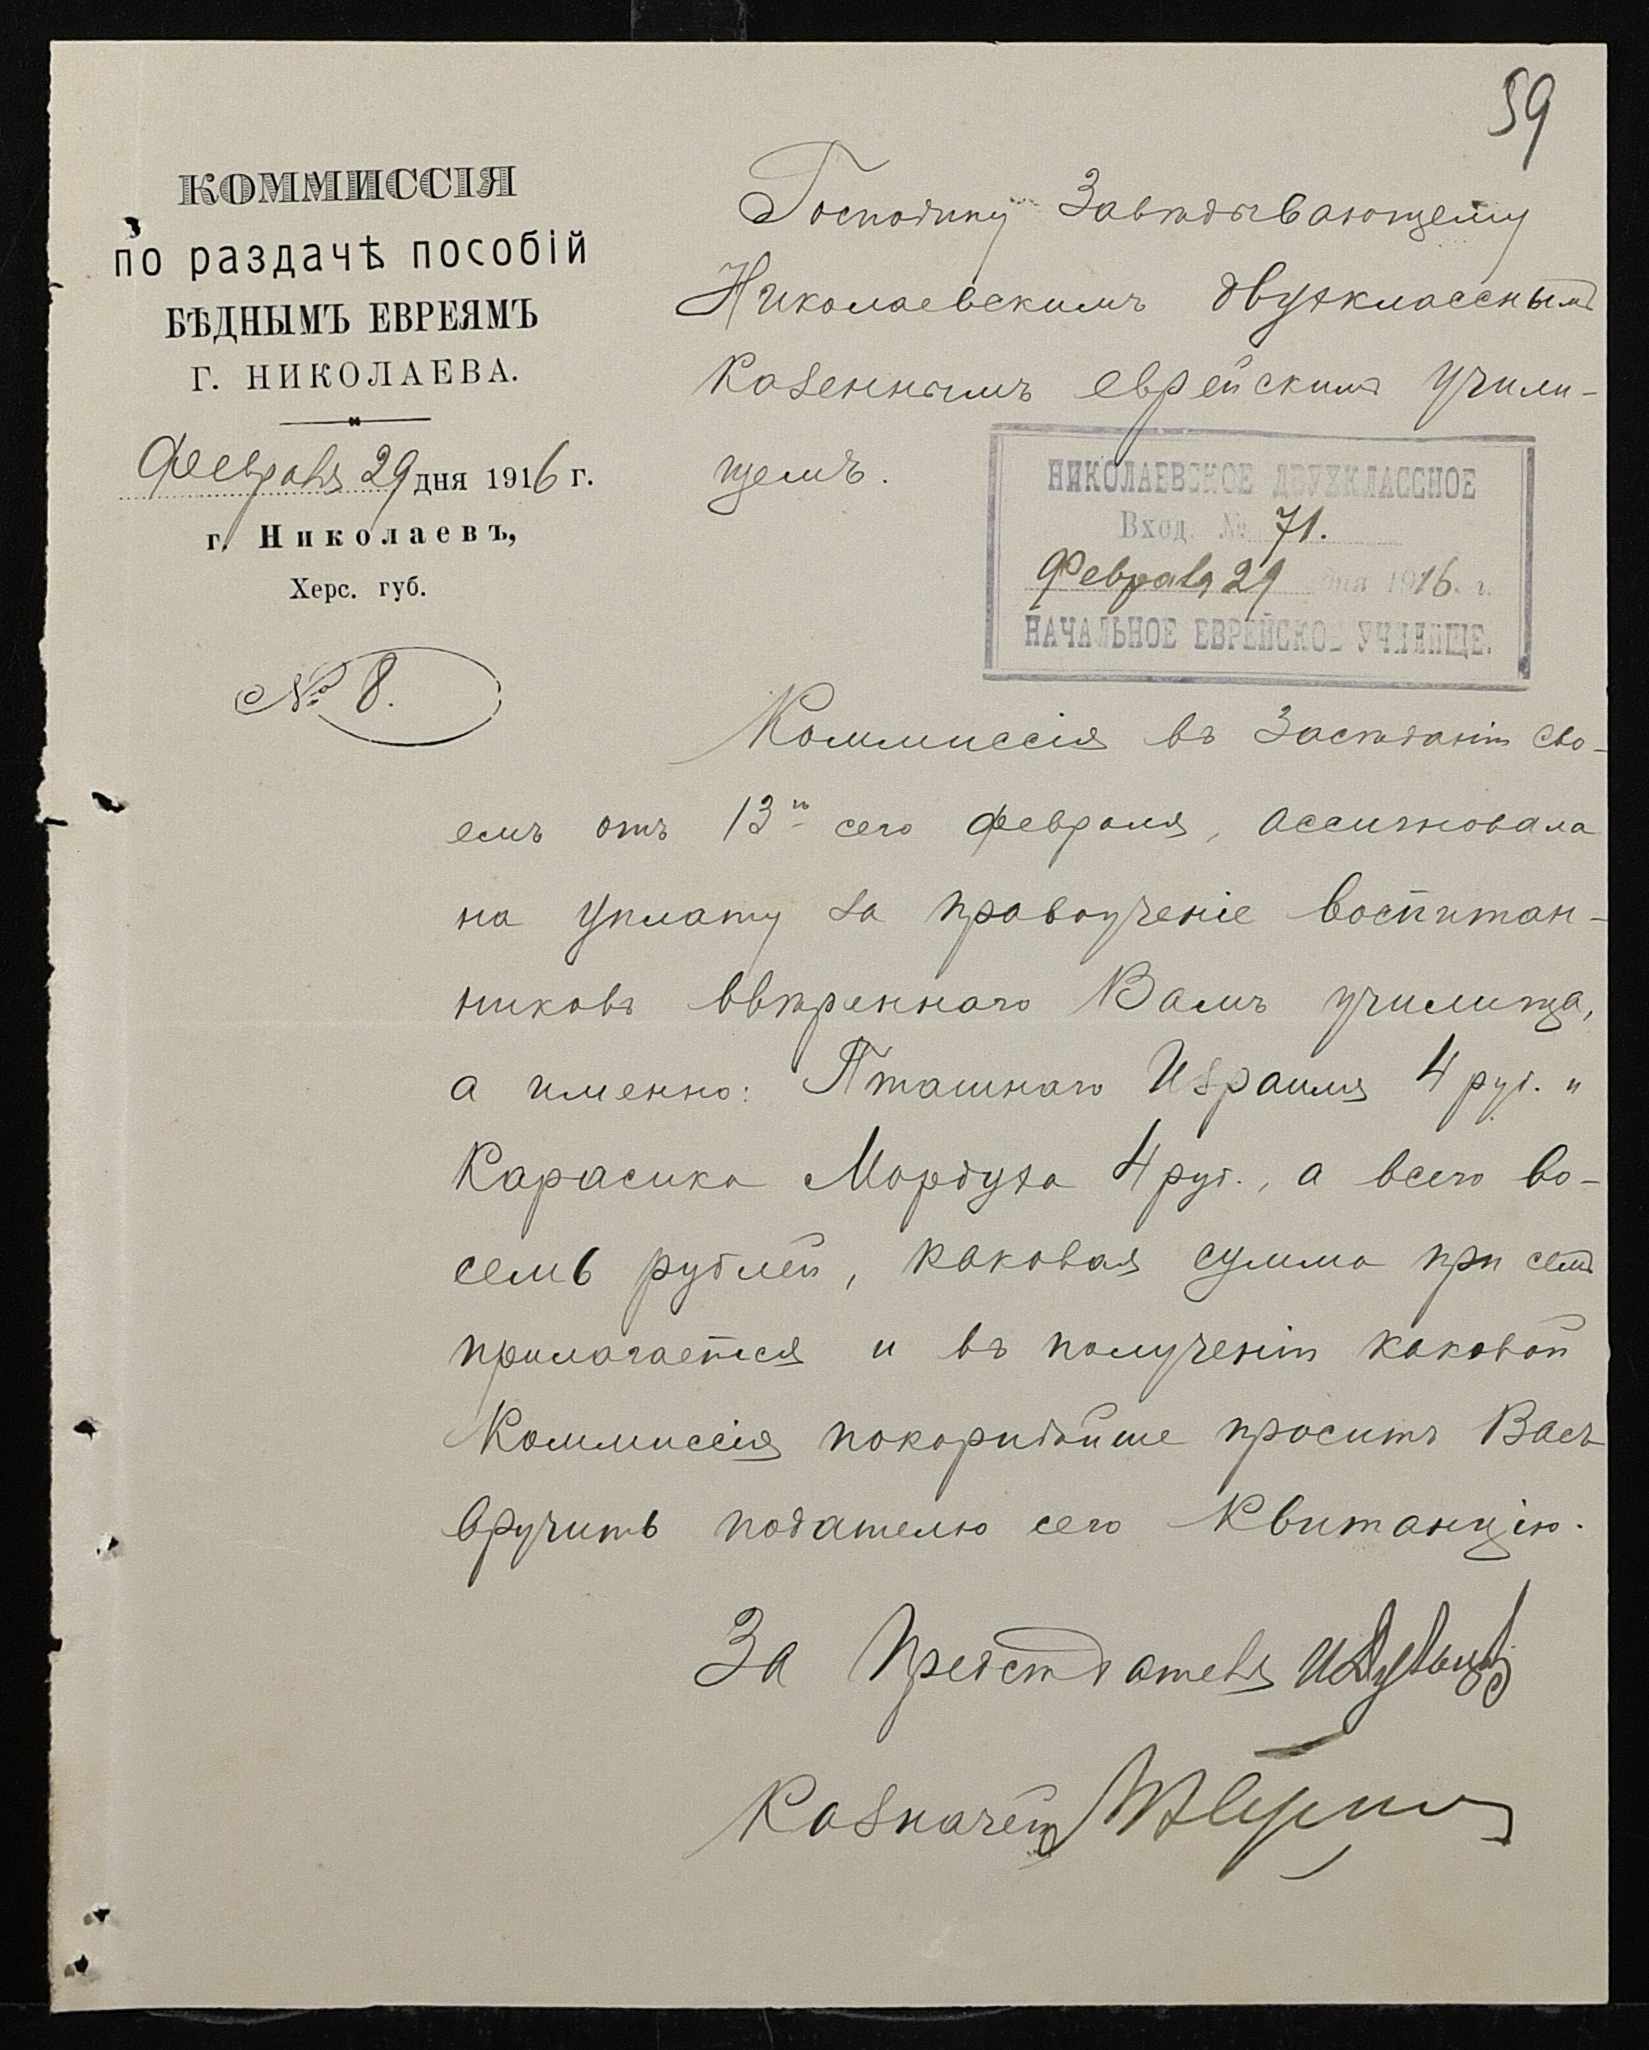 59
КОММИССІЯ
по раздачѣ пособій
БѢДНЫМЪ ЕВРЕЯМЪ
Г. НИКОЛАЕВА.
Февраля 29 дня 1916 г.
г. Николаевъ,
Херс. губ.
№ 8.
Господину Завѣдывающему
Николаевскимъ двухкласснымъ
казеннымъ еврейскимъ учили-
щемъ.
НИКОЛАЕВСКОЕ ДВУХКЛАССНОЕ
Вход. № 71.
Февраля 29 дня 1916. г.
НАЧАЛЬНОЕ ЕВРЕЙСКОЕ УЧИЛИЩЕ.
Коммиссія въ засѣданіи сво-
емъ отъ 13го сего февраля, ассигновала
на уплату за правоученіе воспитан-
никовъ ввѣреннаго Вамъ училища,
а именно: Пташнаго Израиля 4 руб. и
Карасика Мордуха 4 руб., а всего во-
семь рублей, каковая сумма при семъ
прилагается и въ полученіи каковой
Коммиссія покорнѣйше проситъ Васъ
вручить подателю сего квитанцію.
За Предсѣдателя
Казначей